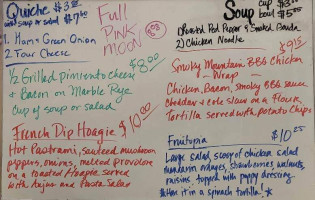 Quiche $3.25
with soup or salad $7.50
1. Ham & Green Onion
2. Four Cheese
Full
Pink
moon
Soup cup $3.00
bowl $5.00
1) Roasted Red Pepper & Smoked Gouda
2) Chicken Noodle
1/2 Grilled pimiento cheese $8.00
& Bacon on Marble Rye
cup of soup or salad
Smoky Mountain BBQ Chicken $9.15
- Wrap -
Chicken, Bacon, Smoky BBQ sauce
Cheddar & cole slaw on a Flour
Tortilla served with potato Chips
French Dip Hoagie $10.00
Hot Pastrami, sauteed mushroom
peppers, onions, melted provolone
on a toasted Hoagie, served
with Aujus and Pasta Salad
Fruitopia $10.25
Large salad, scoop of chicken salad
mandarin oranges, strawberries, walnuts,
raisins, topped with poppy dressing
it in a spinach tortilla! *